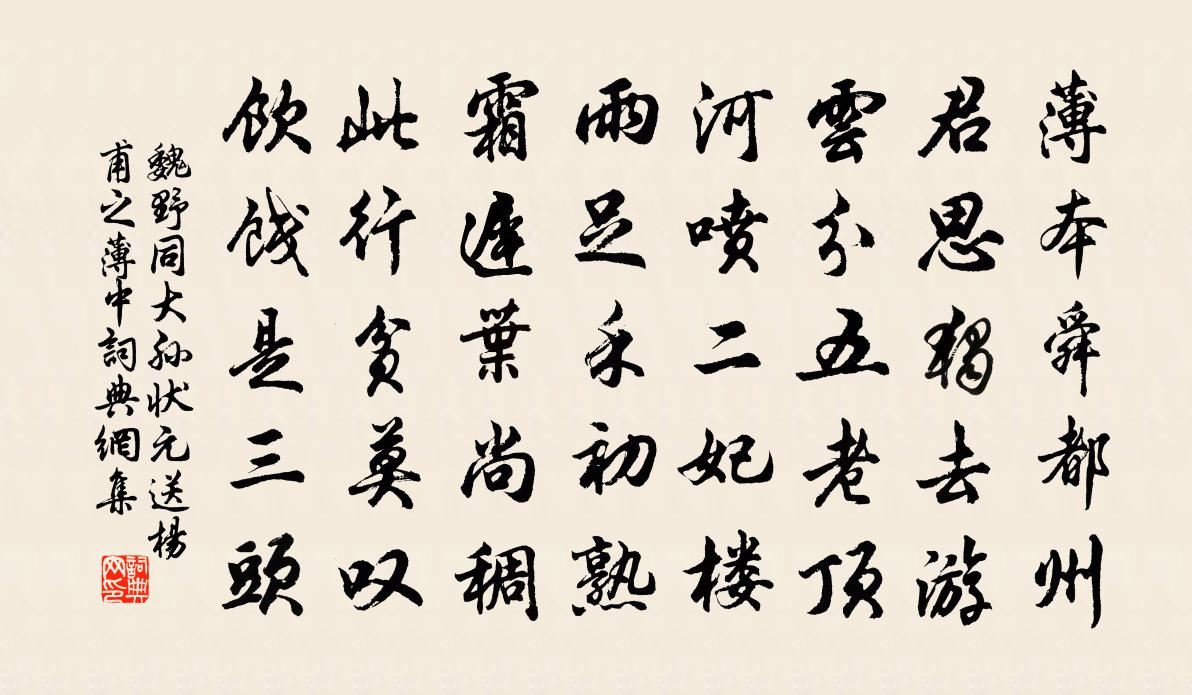 薄本舜都州
君思獨去游
雲分五老頂
河噴二妃楼
雨足禾初熟
霜遲葉尚稠
此行貧莫叹
飲餞是三頭
魏野同大孙状元送楊
甫之薄中詞典網集
詞典网印